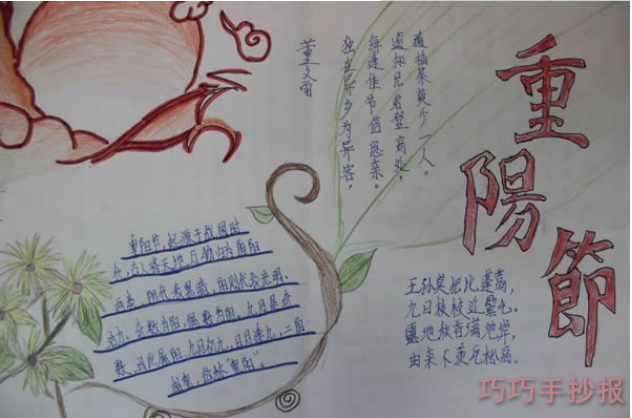 重陽節
董文雨
独在异乡为异客,
每逢佳节倍思亲。
遥知兄弟登高处,
遍插茱萸少一人。
重阳节,起源于战国时
代,古人将天地万物归为阴阳
两类,阴代表黑暗,阳则代表光明、
活力。奇数为阳,偶数为阴。九月是奇
数,因此属阳,九月初九,日月逢九,二阳
相重,故称"重阳"
王孙莫把比蓬蒿,
九日枝枝近鬓毛。
香满地
由来不羡瓦松高。
巧巧手抄报